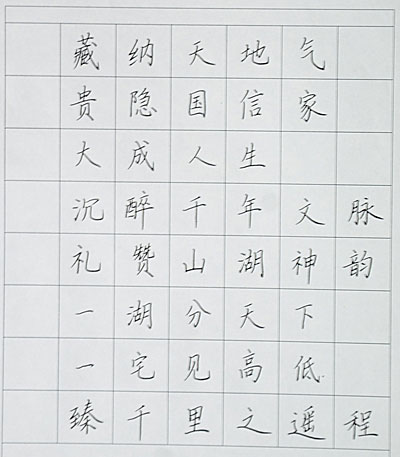 藏纳天地气
贵隐国信家
大成人生
沉醉千年文脉
礼赞山湖神韵
一湖分天下
一宅见高低
臻千里之遥程